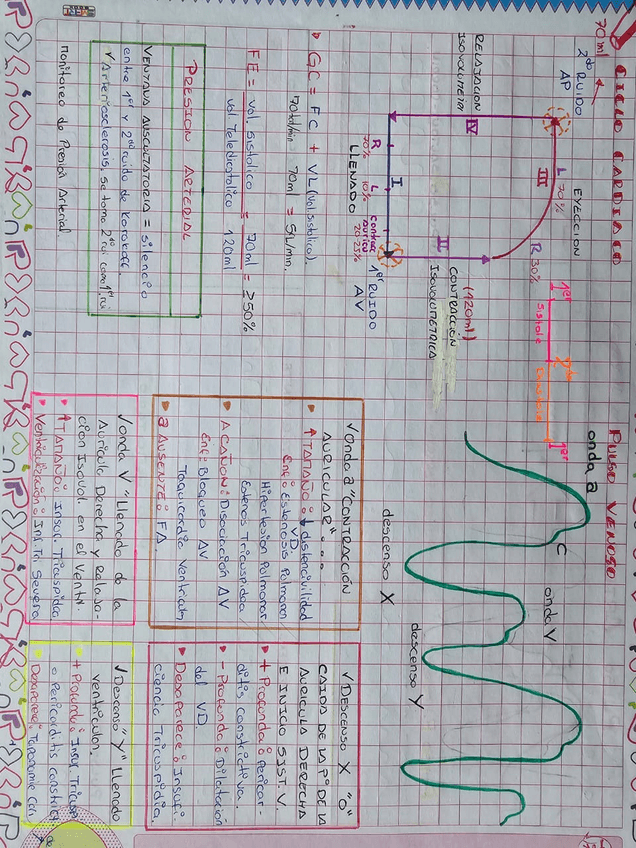 CICLO CARDIACO
70ml
2do RUIDO
AP
EYECCION
L 70%
R 30%
III
IV
RELAJACION
ISOVOLUMETRICA
II
(120ml)
CONTRACCIÓN
ISOVOLUMETRICA
I
R L
70% 10% 20-25%
LLENADO
1er RUIDO
AV
1er 2do 1er
Sistole
GC = FC + VL (vol. sistolico).
70ml = 5L/min.
FE = Vol. Sistolico = 70ml = ≥50%
Vol Telediastolico 120ml
PRESION ARTERIAL
VENTANA AUSCULTATORIA = Silencio
entre 1er y 2do ruido de Korotkoff.
monitoreo de Presion Arterial.
PULSO VENOSO
onda a
C
onda V
descenso X
descenso Y
√ onda a "CONTRACCIÓN
AURICULAR"
↑ TAMAÑO: ↓ distensibilidad
VD
Enf: Estenosis Pulmonar
Hipertension Pulmonar
Estenos Tricuspidea
A CAÑON: Disociación AV
Enf: Bloqueo AV
Taquicardia Ventricular
a AUSENTE: FA.
√ onda V "llenado de la
Auricula Derecha y Relaja-
ción Isovol. en el Ventri.
↑ TAMAÑO: Insuf. Tricuspidea
Ventriculización: Insf. Tri. Severa
√ DESCENSO X "O"
CAIDA DE LA P° DE LA
AURICULA DERECHA
E INICIO SIST. V.
+ Profunda: pericar-
ditis constrictiva.
- Profunda: Dilatación
del VD.
Desaparece: Insufi-
ciencia Tricuspidia.
√ Descenso "Y" llenado
ventricular.
+ Profundo: Insuf. Tricusp
o Pericarditis constric
Desaparece: Taponamie Car